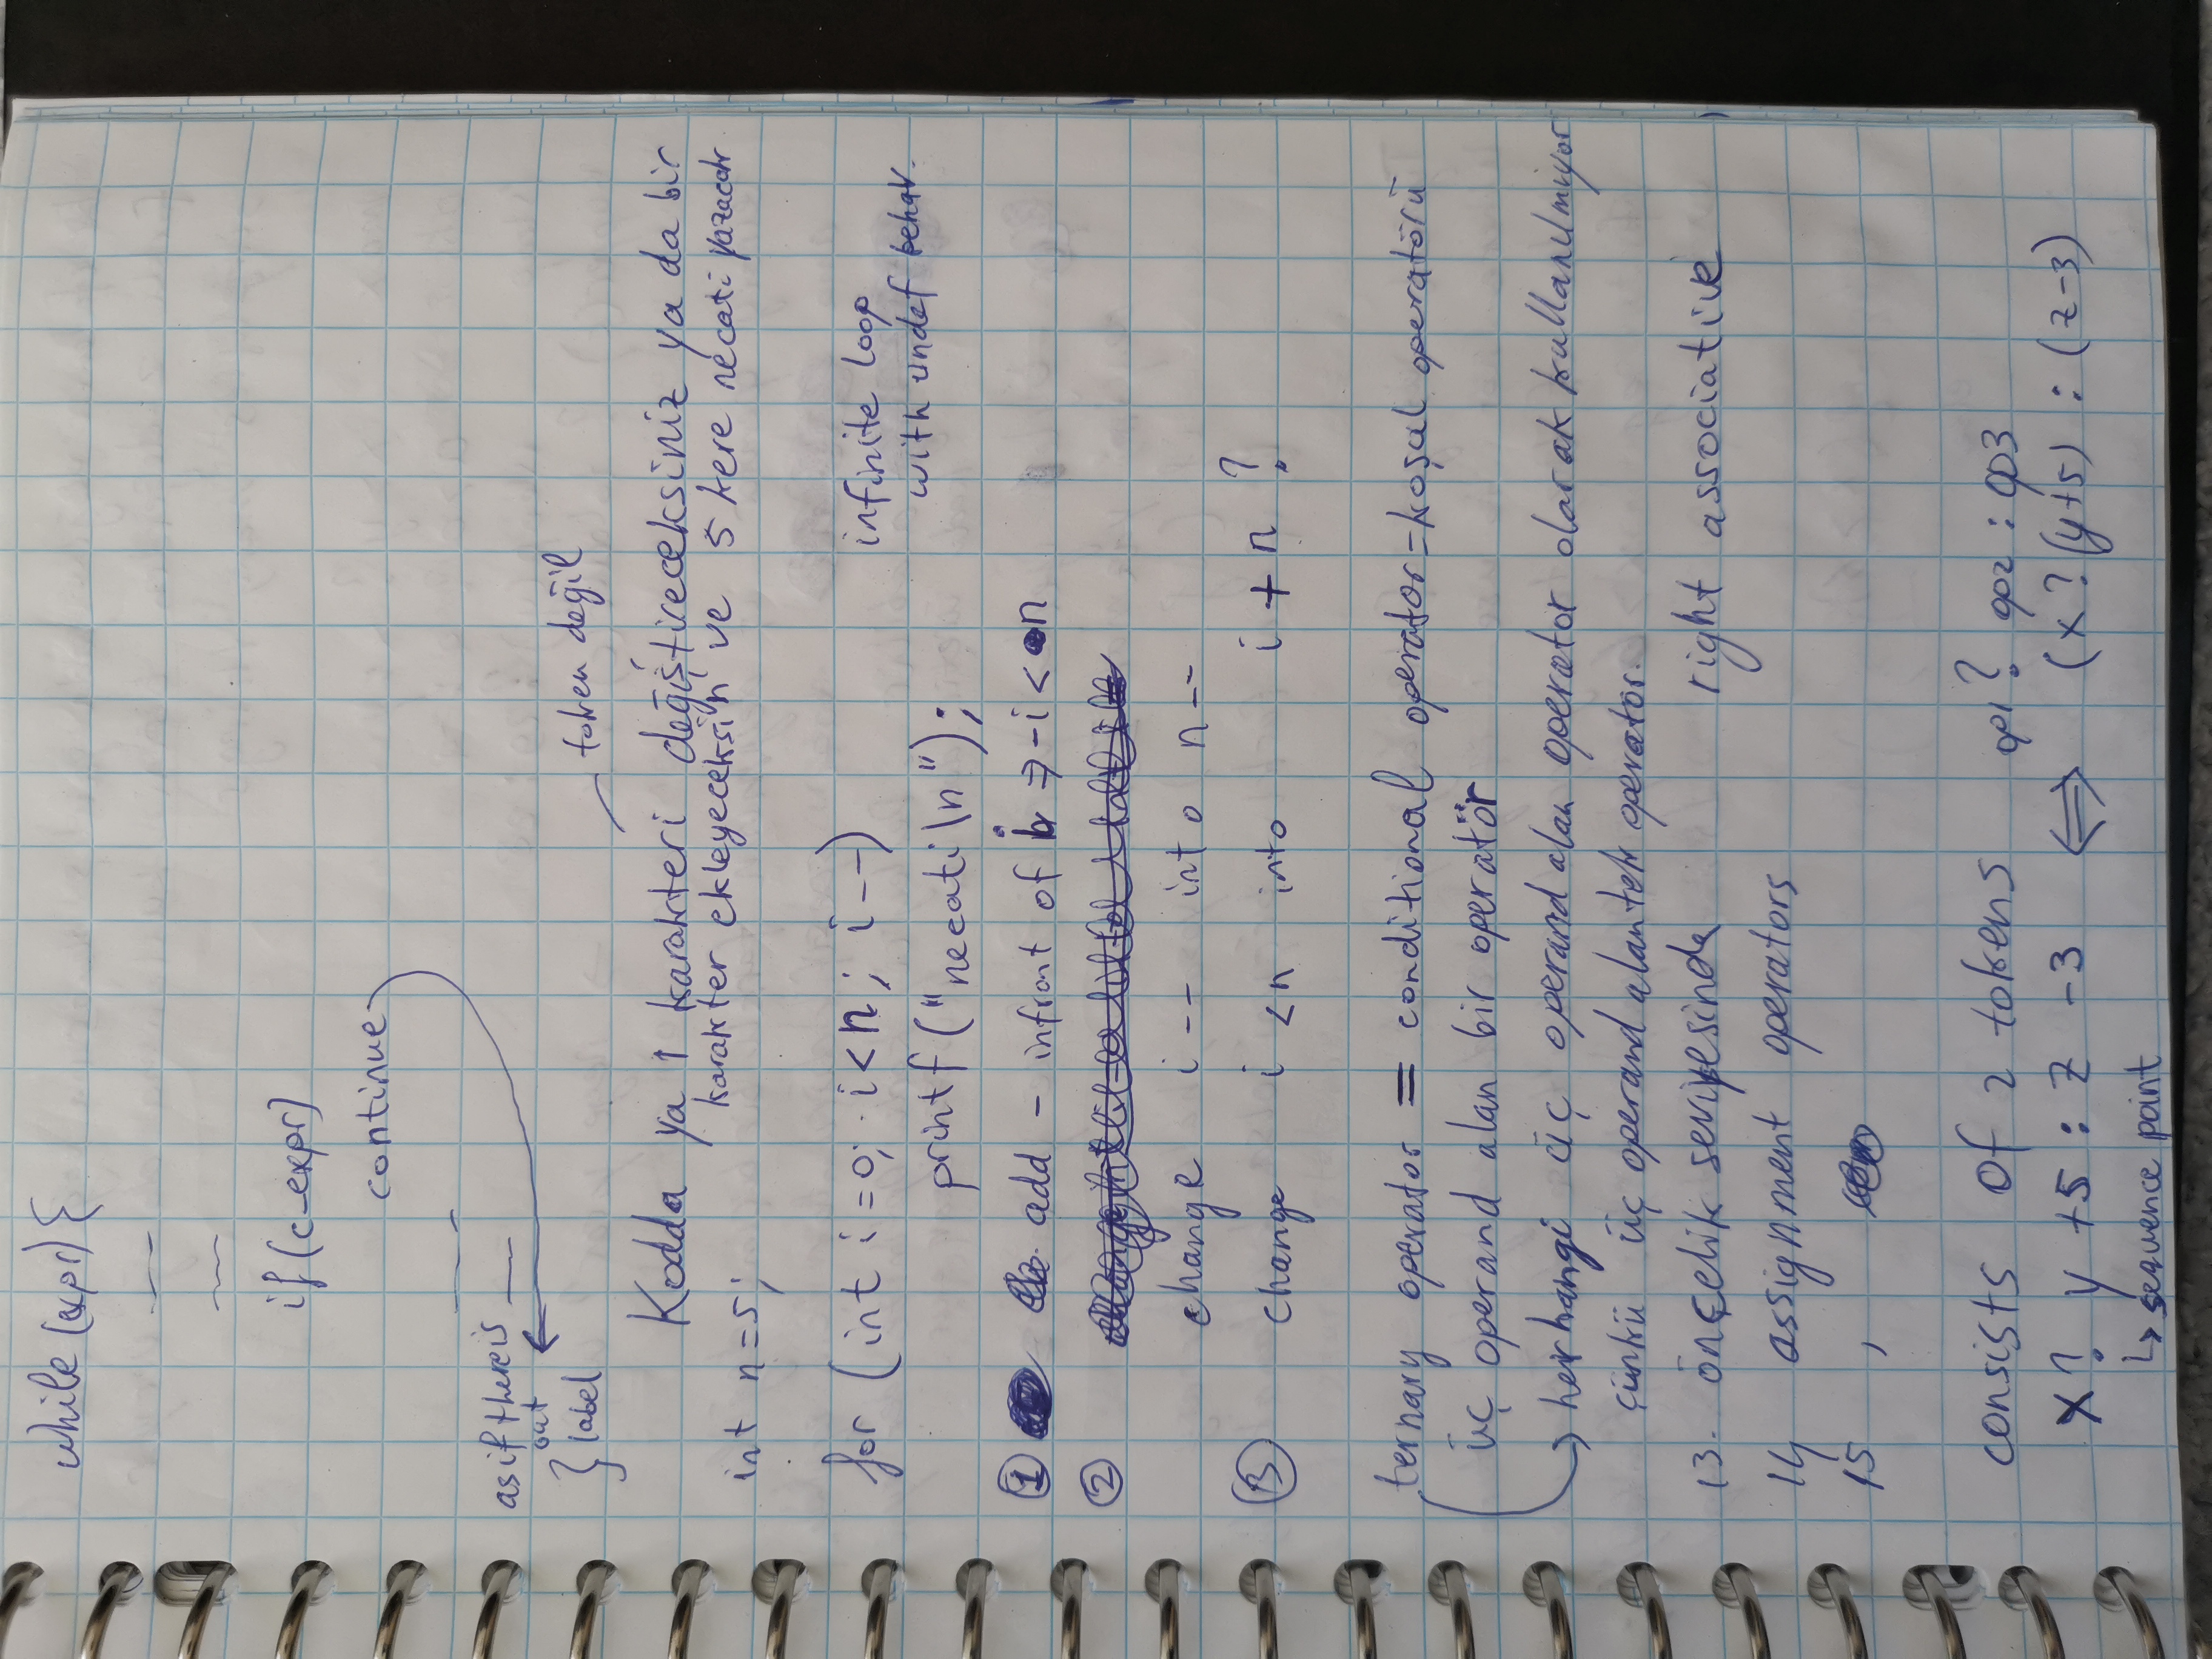 while (expr) {
if (c-expr)
continue
as if there is
out
} label
token değil
Kodda ya 1 karakteri değiştireceksiniz ya da bir
karakter ekleyeceksin ve 5 kere necati yazacak
int n=5;
for (int i=0; i<n; i--)
infinite loop
with undef behav.
printf("necati\n");
1 add - infront of i => -i < n
2
change i-- into n--
3 change i <n into i + n ?
ternary operator = conditional operator = koşul operatörü
üç operand alan bir operatör
→ herhangi üç operand alan operator olarak kullanılmıyor
çünkü üç operand alan tek operatör.
13. önçelik seviyesinde right associative
14 assignment operators
15 ,
consists of 2 tokens op1? op2 : op3
x? y +5 : z -3 ⟺ (x ? (y+5) : (z-3)
↳ sequence point